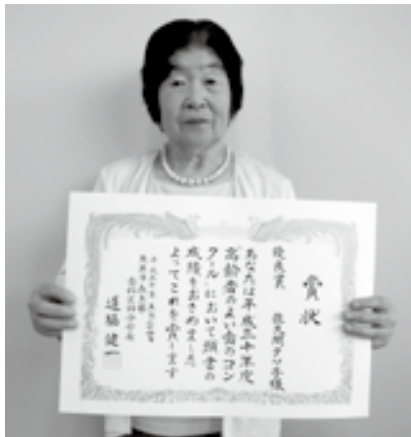 賞状
優良賞 佐久間タマ子様
あなたは平成三十年度
「高齢者のよい歯のコン
クール」において頭書の
成績をおさめました
よってこれを賞します
道脇健一